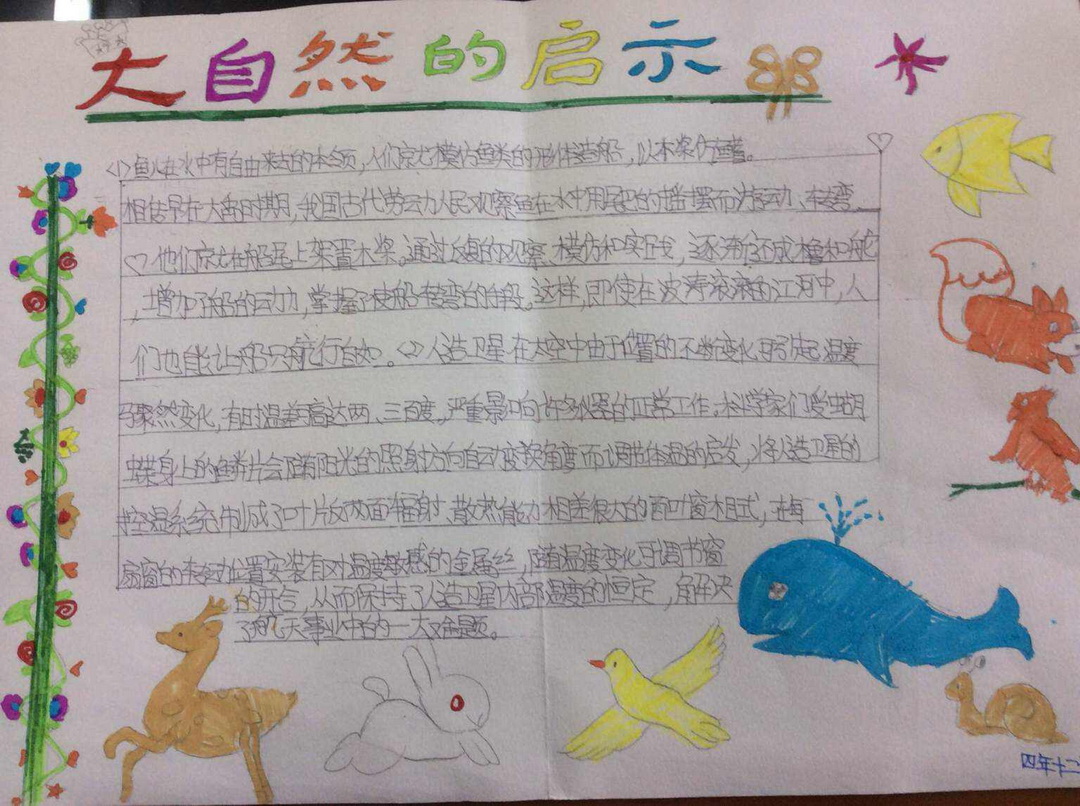 大自然的启示
<1>鱼儿在水中有自由来去的本领,人们就模仿鱼类的形体造船,以木桨仿鳍。
相传早在大禹时期,我国古代劳动人民观察鱼在水中用尾巴的摇摆而游动、转弯,
他们就在船尾上架置木桨。通过反复的观察、模仿和实践,逐渐改成橹和舵
,增加了船的动力,掌握了使船转弯的手段。这样,即使在波涛滚滚的江河中,人
们也能让船只航行自如。<2>人造卫星在太空中由于位置的不断变化可引起温度
骤然变化,有时温差高达两、三百度,严重影响许多仪器的正常工作。科学家们受蝴
蝶身上的鳞片会随阳光的照射方向自动变换角度而调节体温的启发,将人造卫星的
控温系统制成了叶片反两面辐射、散热能力相差很大的百叶窗样式,在每
扇窗的转动位置安装有对温度敏感的金属丝,随温度变化可调节窗
的开合,从而保持了人造卫星内部温度的恒定,解决
了航天事业中的一大难题。
四年十二